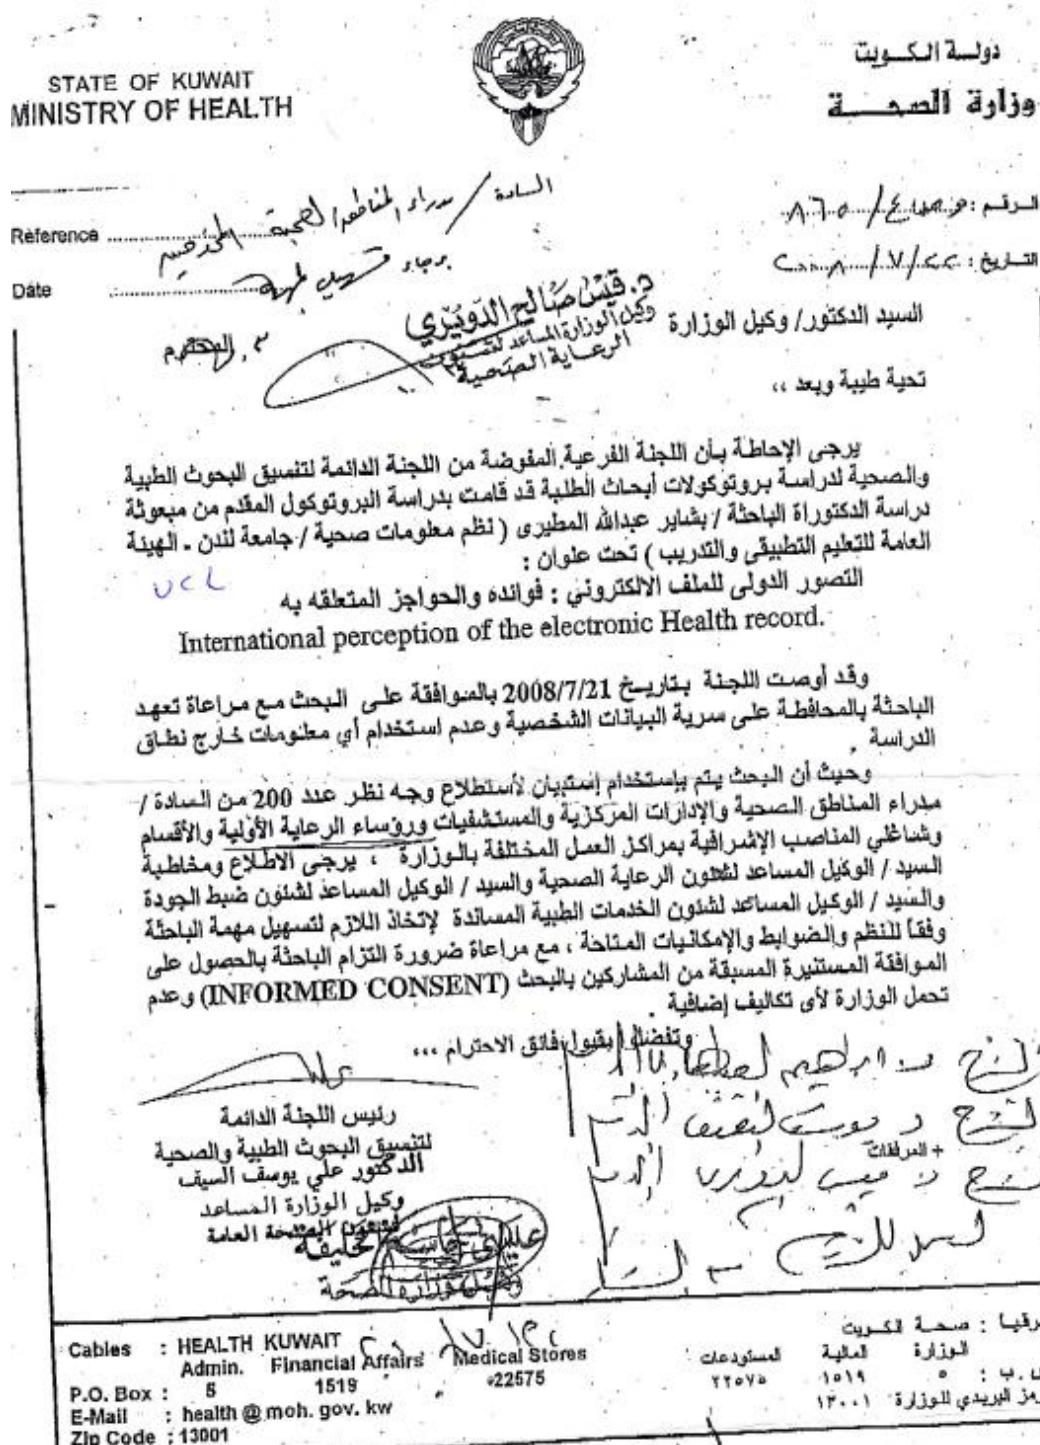 دولة الكويت
وزارة الصحة
STATE OF KUWAIT
MINISTRY OF HEALTH
الرقم : ٨٦٥/٤
Reference
السادة / مدراء المناطق الصحية المحترمين
التاريخ : ٢٠٠٨/٧/٢٢
Date
برجاء تسهيل المهمة
د. قيس صالح الدويري
وكيل الوزارة المساعد لشئون
الرعاية الصحية
السيد الدكتور/ وكيل الوزارة
المحترم
تحية طيبة وبعد ،،
يرجى الإحاطة بأن اللجنة الفرعية المفوضة من اللجنة الدائمة لتنسيق البحوث الطبية
والصحية لدراسة بروتوكولات أبحاث الطلبة قد قامت بدراسة البروتوكول المقدم من مبعوثة
دراسة الدكتوراة الباحثة / بشاير عبدالله المطيرى ( نظم معلومات صحية / جامعة لندن - الهيئة
العامة للتعليم التطبيقى والتدريب ) تحت عنوان :
UCL
التصور الدولى للملف الالكتروني : فوائده والحواجز المتعلقه به
International perception of the electronic Health record.
وقد أوصت اللجنة بتاريخ 2008/7/21 بالموافقة على البحث مع مراعاة تعهد
الباحثة بالمحافظة على سرية البيانات الشخصية وعدم استخدام أي معلومات خارج نطاق
الدراسة .
وحيث أن البحث يتم بإستخدام إستبيان لأستطلاع وجه نظر عدد 200 من السادة /
مدراء المناطق الصحية والإدارات المركزية والمستشفيات ورؤساء الرعاية الأولية والأقسام
وشاغلي المناصب الإشرافية بمراكز العمل المختلفة بالوزارة ، يرجى الاطلاع ومخاطبة
السيد / الوكيل المساعد لشئون الرعاية الصحية والسيد / الوكيل المساعد لشئون ضبط الجودة
والسيد / الوكيل المساعد لشئون الخدمات الطبية المساندة لإتخاذ اللازم لتسهيل مهمة الباحثة
وفقاً للنظم والضوابط والإمكانيات المتاحة ، مع مراعاة ضرورة التزام الباحثة بالحصول على
الموافقة المستنيرة المسبقة من المشاركين بالبحث (INFORMED CONSENT) وعدم
تحمل الوزارة لأى تكاليف إضافية .
وتفضلوا بقبول فائق الاحترام ...
رئيس اللجنة الدائمة
لتنسيق البحوث الطبية والصحية
الدكتور علي يوسف السيف
وكيل الوزارة المساعد
لشئون الصحة العامة
+ المرفقات
وكيل وزارة الصحة
Cables : HEALTH KUWAIT
Admin. Financial Affairs Medical Stores
P.O. Box : 5 1519 22575
E-Mail : health @ moh. gov. kw
Zip Code : 13001
برقيا : صحة الكويت
الوزارة المالية المستودعات
ص . ب : ٥ ١٥١٩ ٢٢٥٧٥
الرمز البريدي للوزارة ١٣٠٠١